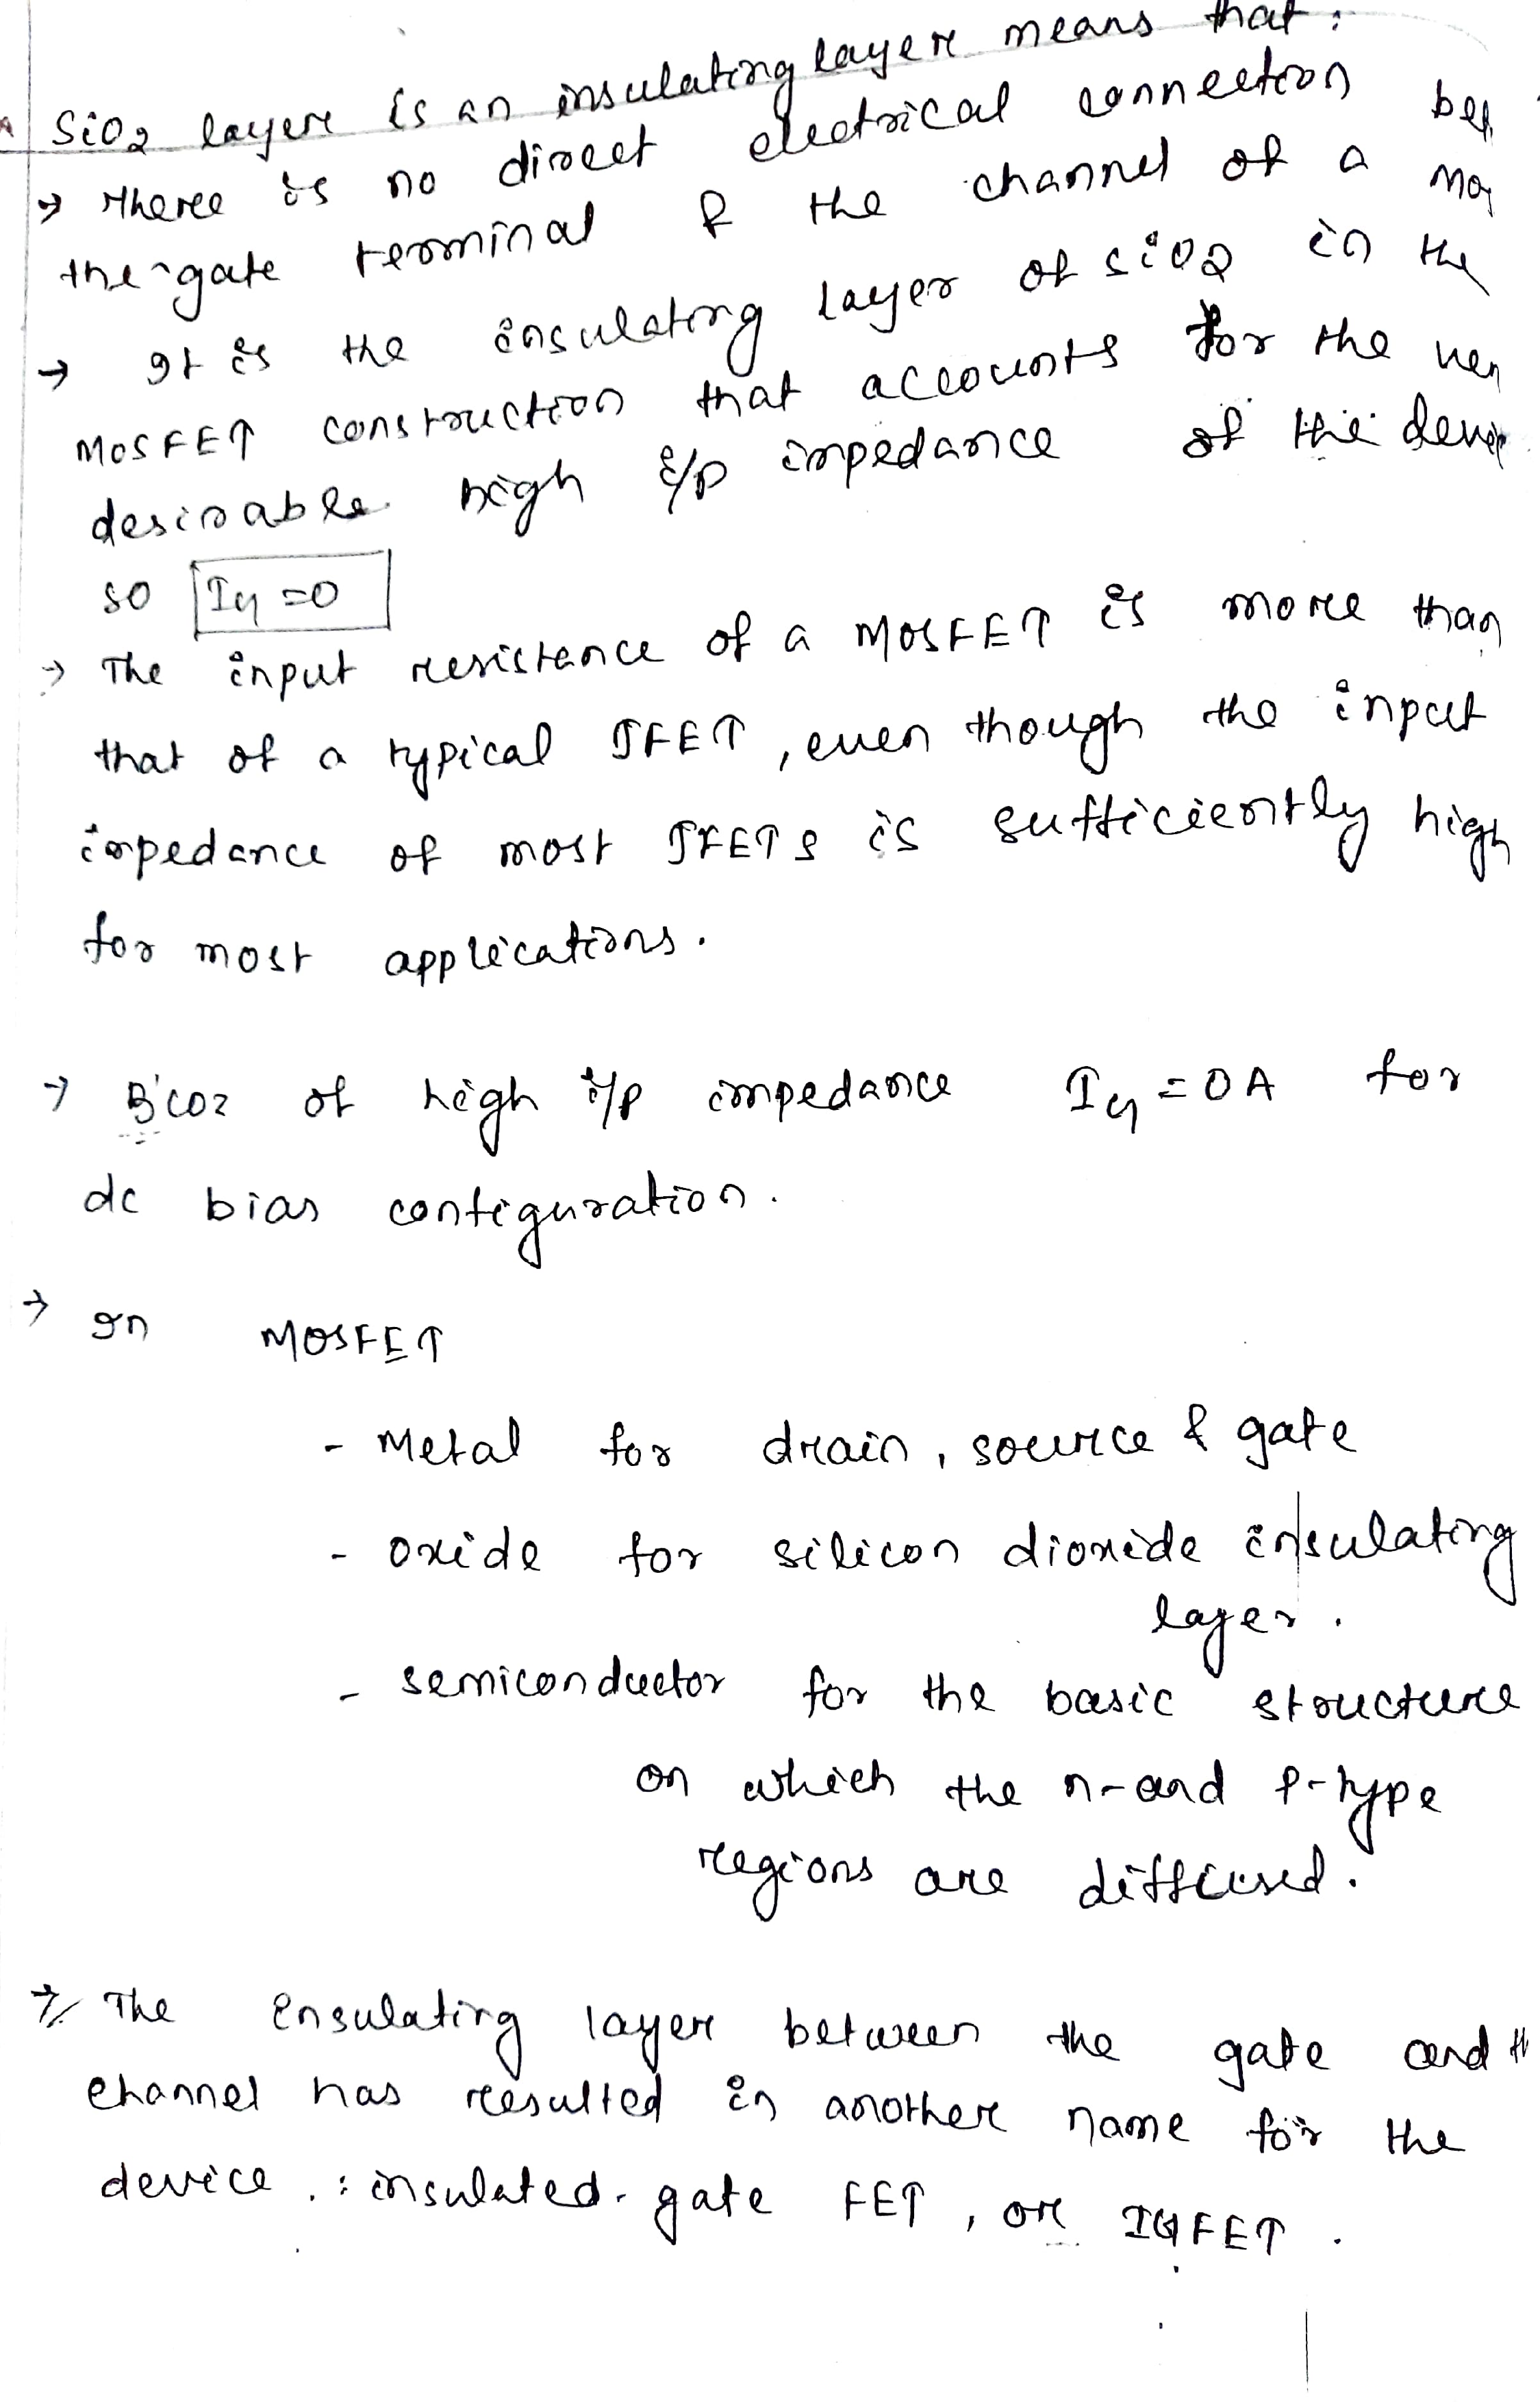 SiO2 layer is an insulating layer means that :
→ there is no direct electrical connection bet
the gate terminal & the channel of a mos
→ It is the insulating layer of SiO2 in the
MOSFET construction that accounts for the very
desirable high i/p impedance of the device
so IG = 0
→ The input resistance of a MOSFET is more than
that of a typical JFET, even though the input
impedance of most JFETs is sufficiently high
for most applications.
→ B'coz of high i/p impedance IG = 0A for
dc bias configuration.
→ In MOSFET
- Metal for drain, source & gate
- oxide for silicon dioxide insulating
layer.
- semiconductor for the basic structure
on which the n- and p-type
regions are diffused.
→ The insulating layer between the gate and th
channel has resulted in another name for the
device : insulated-gate FET, or IGFET.